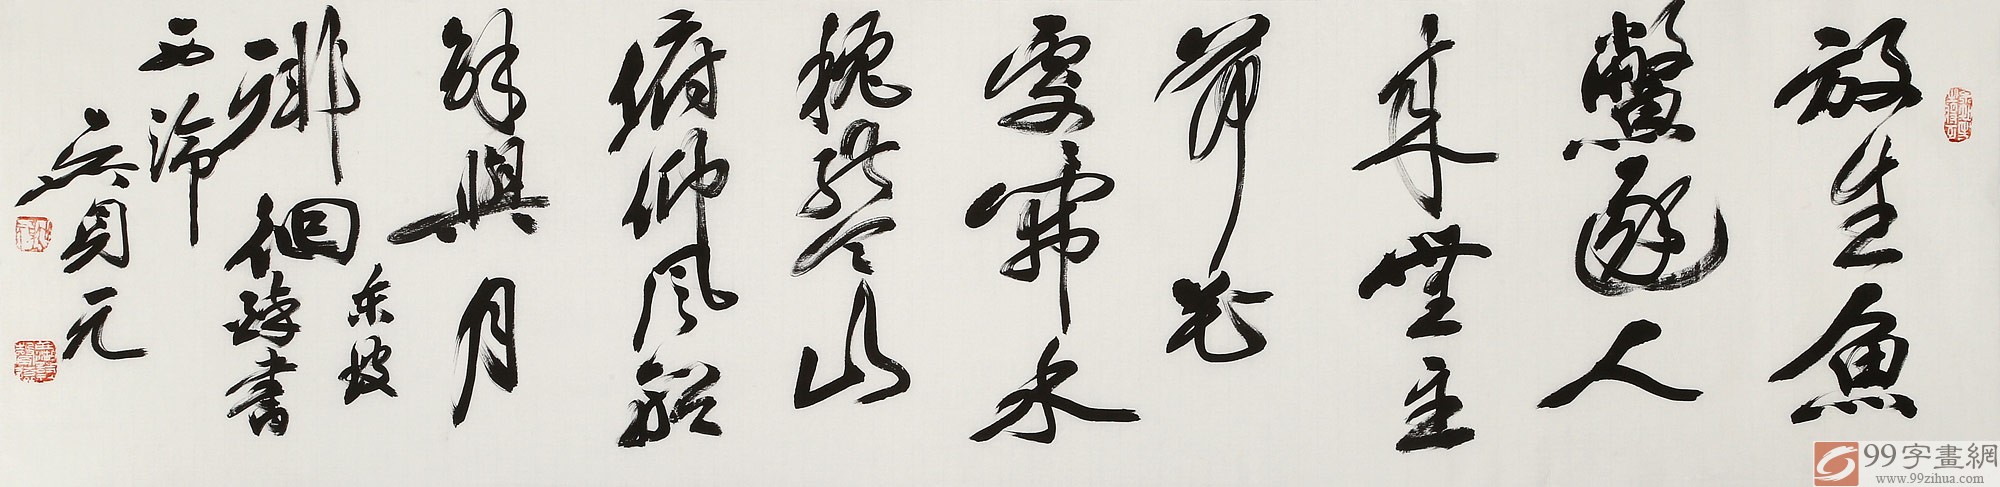 放生魚
鱉逐人
来無主
荷花
處開水
枕能令山
俯仰風船
解與月
徘徊
东坡
詩書
西泠
元
99字畫網
www.99zihua.com